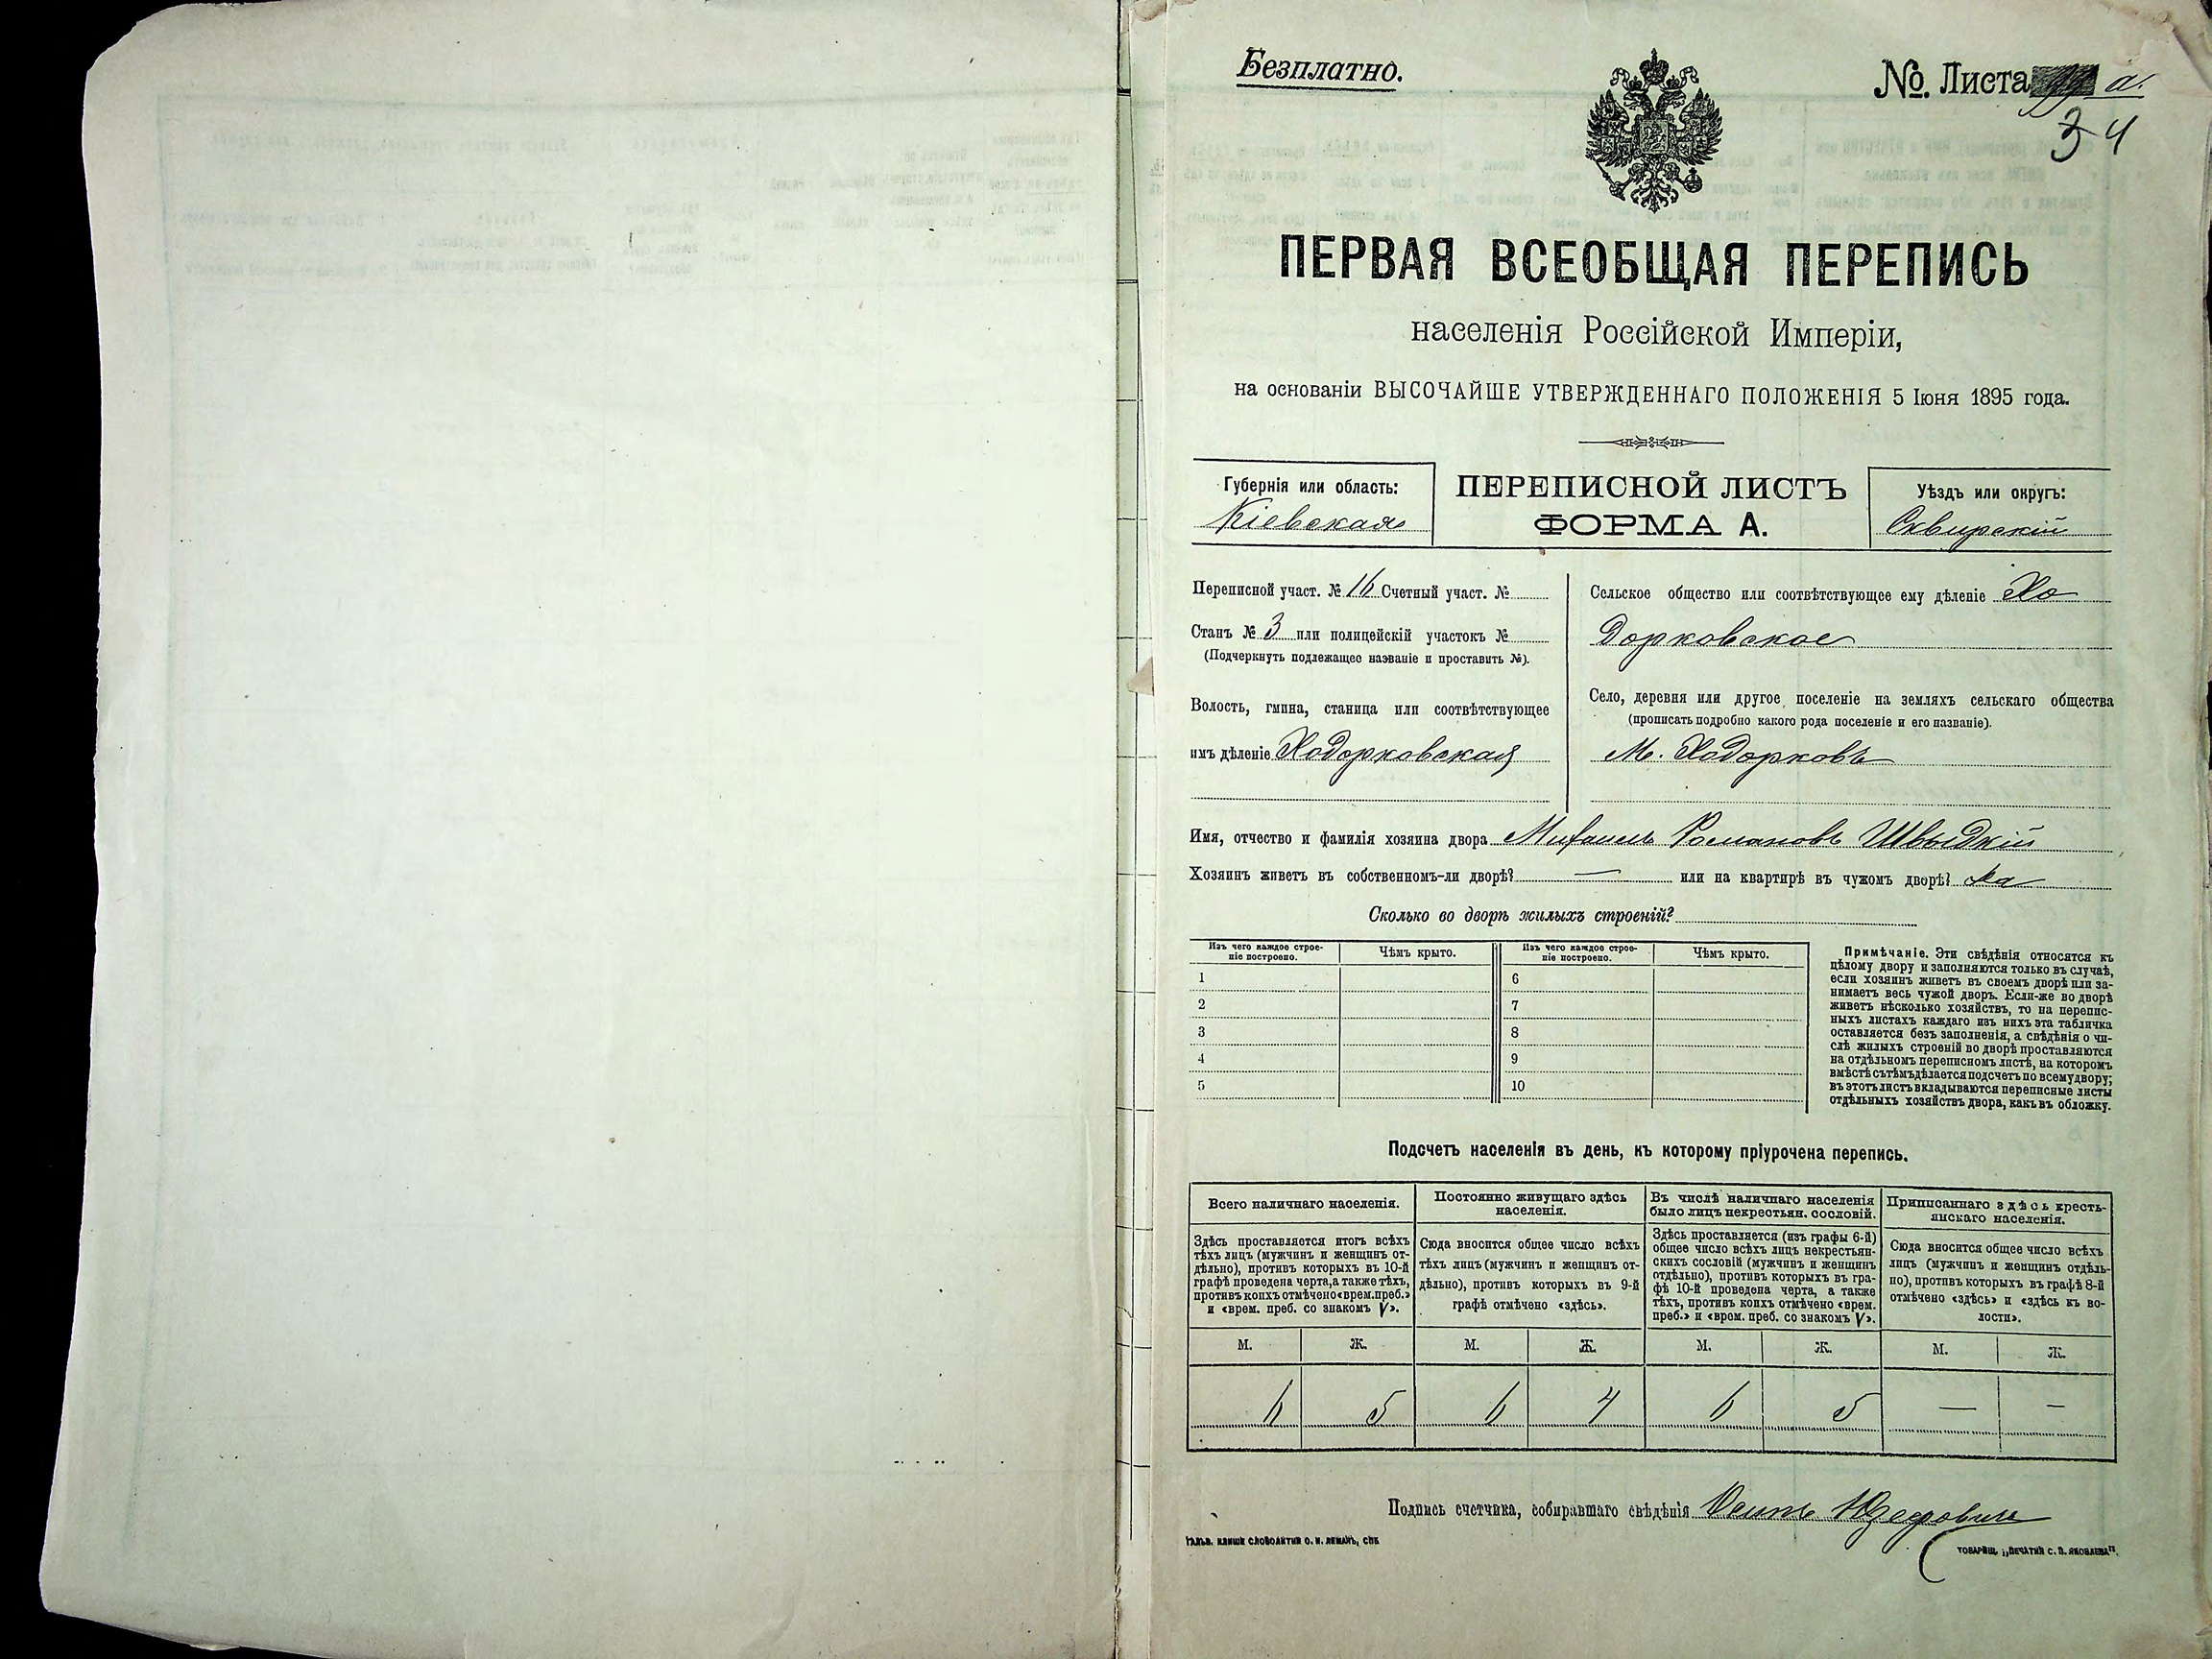 Безплатно.
№. Листа а.
34
ПЕРВАЯ ВСЕОБЩАЯ ПЕРЕПИСЬ
населенія Россійской Имперіи,
на основаніи ВЫСОЧАЙШЕ УТВЕРЖДЕННАГО ПОЛОЖЕНІЯ 5 Іюня 1895 года.
Губернія или область:
Кіевская
ПЕРЕПИСНОЙ ЛИСТЪ
ФОРМА А.
Уѣздъ или округъ:
Сквирскій
Переписной участ. № 16 Счетный участ. №
Станъ № 3 или полицейскій участокъ №
(Подчеркнуть подлежащее названіе и проставить №).
Волость, гмина, станица или соотвѣтствующее
имъ дѣленіе Ходорковская
Сельское общество или соотвѣтствующее ему дѣленіе Хо
дорковское
Село, деревня или другое поселеніе на земляхъ сельскаго общества
(прописать подробно какого рода поселеніе и его названіе).
М. Ходорковъ
Имя, отчество и фамилія хозяина двора Михаилъ Романовъ Швыдкій
Хозяинъ живетъ въ собственномъ-ли дворѣ? — или на квартирѣ въ чужомъ дворѣ? да
Сколько во дворѣ жилыхъ строеній?
Изъ чего каждое строе-
ніе построено.
Чѣмъ крыто.
Изъ чего каждое строе-
ніе построено.
Чѣмъ крыто.
1 6
2 7
3 8
4 9
5 10
Примѣчаніе. Эти свѣдѣнія относятся къ
цѣлому двору и заполняются только въ случаѣ,
если хозяинъ живетъ въ своемъ дворѣ или за-
нимаетъ весь чужой дворъ. Если-же во дворѣ
живетъ нѣсколько хозяйствъ, то на перепис-
ныхъ листахъ каждаго изъ нихъ эта табличка
оставляется безъ заполненія, а свѣдѣнія о чи-
слѣ жилыхъ строеній во дворѣ проставляются
на отдѣльномъ переписномъ листѣ, на которомъ
вмѣстѣ съ тѣмъ дѣлается подсчетъ по всему двору;
въ этотъ листъ вкладываются переписные листы
отдѣльныхъ хозяйствъ двора, какъ въ обложку.
Подсчетъ населенія въ день, къ которому пріурочена перепись.
Всего наличнаго населенія.
Здѣсь проставляется итогъ всѣхъ
тѣхъ лицъ (мужчинъ и женщинъ от-
дѣльно), противъ которыхъ въ 10-й
графѣ проведена черта, а также тѣхъ,
противъ коихъ отмѣчено «врем. преб.»
и «врем. преб. со знакомъ V».
Постоянно живущаго здѣсь
населенія.
Сюда вносится общее число всѣхъ
тѣхъ лицъ (мужчинъ и женщинъ от-
дѣльно), противъ которыхъ въ 9-й
графѣ отмѣчено «здѣсь».
Въ числѣ наличнаго населенія
было лицъ некрестьян. сословій.
Здѣсь проставляется (изъ графы 6-й)
общее число всѣхъ лицъ некрестьян-
скихъ сословій (мужчинъ и женщинъ
отдѣльно), противъ которыхъ въ гра-
фѣ 10-й проведена черта, а также
тѣхъ, противъ коихъ отмѣчено «врем.
преб.» и «врем. преб. со знакомъ V».
Приписаннаго здѣсь кресть-
янскаго населенія.
Сюда вносится общее число всѣхъ
лицъ (мужчинъ и женщинъ отдѣль-
но), противъ которыхъ въ графѣ 8-й
отмѣчено «здѣсь» и «здѣсь къ во-
лости».
М. Ж. М. Ж. М. Ж. М. Ж.
6 5 6 4 6 5 — —
Подпись счетчика, собиравшаго свѣдѣнія Осипъ
ГАЛЬВ. КЛИШЕ СЛОВОЛИТНИ О. И. ЛЕМАНЪ, СПБ
ТОВАРИЩ. „ПЕЧАТНЯ С. П. ЯКОВЛЕВА".